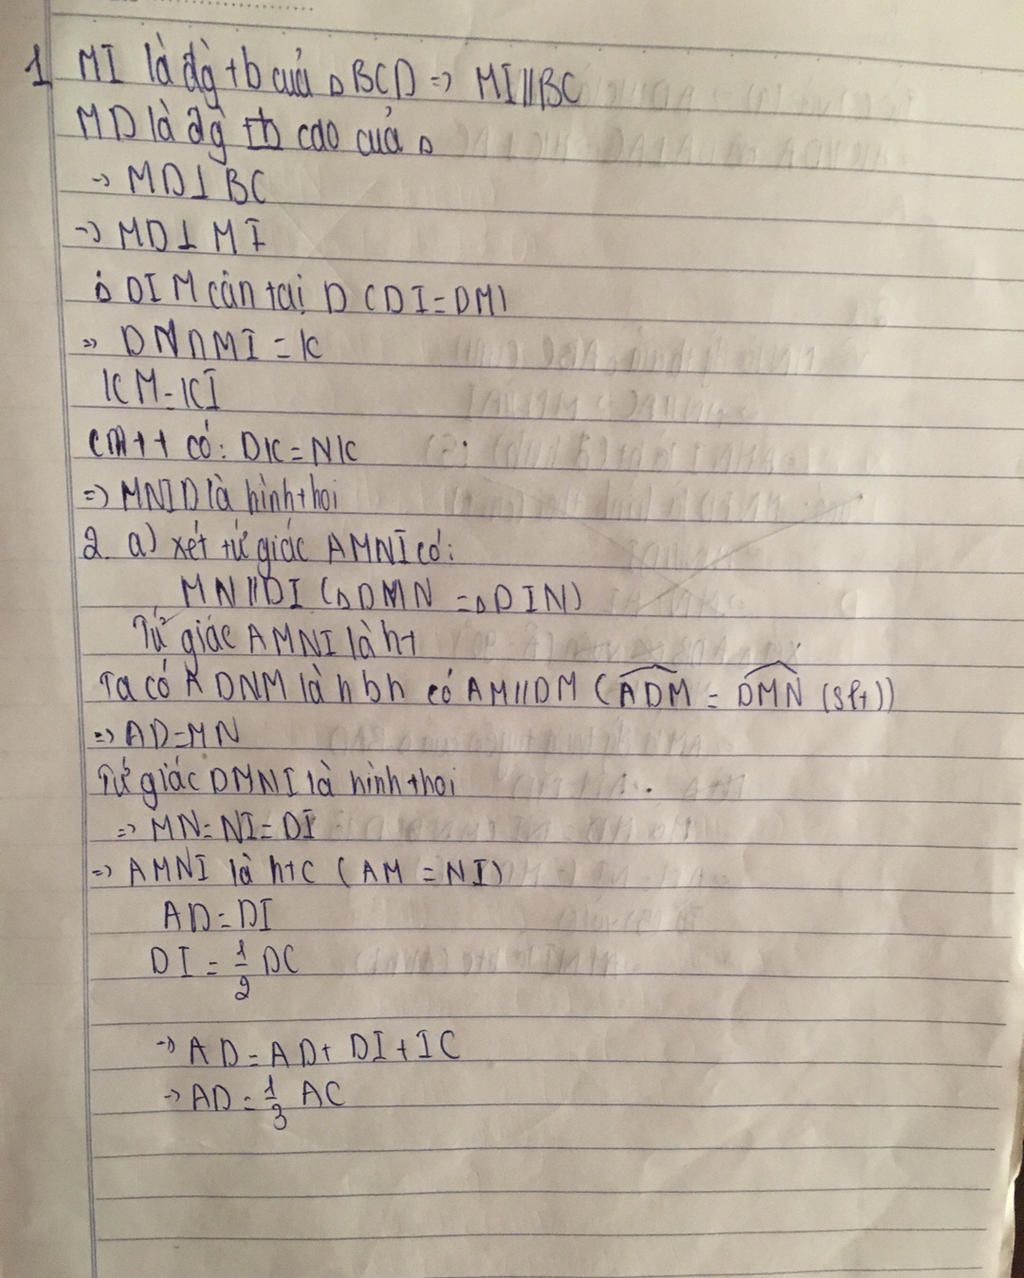 1 MI là đg tb của △BCD => MI//BC
MD là đg cao của △
-> MD⊥BC
-> MD⊥MI
△DIM cân tại D (DI=DM)
=> DN∩MI=K
KM=KI
cm tt có: DK=NK
=> MNID là hình thoi
2. a) xét tứ giác AMNI có:
MN//DI (△DMN=△DIN)
Tứ giác AMNI là ht
Ta có ADNM là hbh có AM//DM (ADM = DMN (slt))
=> AD=MN
Tứ giác DMNI là hình thoi
=> MN=NI=DI
=> AMNI là htc (AM=NI)
AD=DI
DI=1/2 DC
-> AD=AD+DI+IC
-> AD=1/3 AC